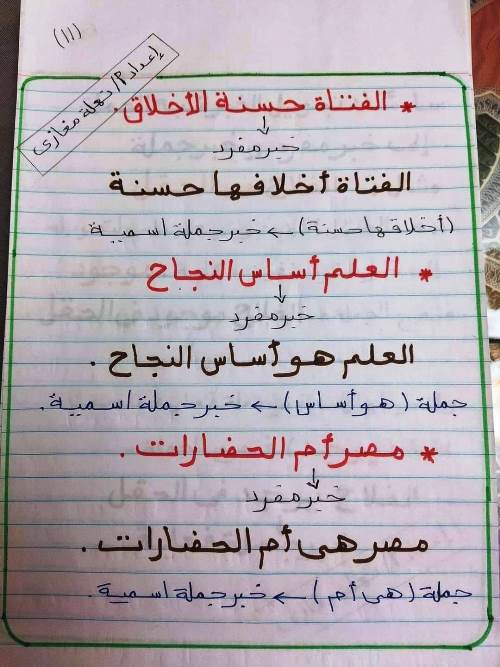 (١١)
إعداد م/ نعلة مغازى
* الفتاة حسنة الأخلاق.
↓
خبر مفرد
الفتاة أخلاقها حسنة
(أخلاقها حسنة) ← خبر جملة اسمية
* العلم أساس النجاح
↓
خبر مفرد
العلم هو أساس النجاح.
جملة (هو أساس) ← خبر جملة اسمية.
* مصر أم الحضارات.
↓
خبر مفرد
مصر هى أم الحضارات.
جملة (هى أم) ← خبر جملة اسمية.